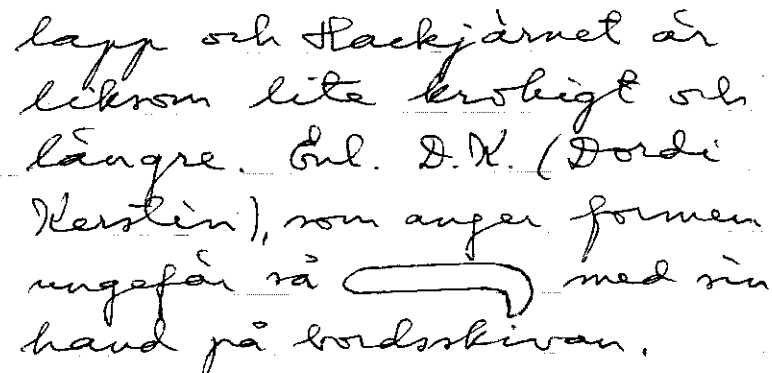 lapp och Hackjärnet är
liksom lite krokigt och
längre. Enl. D.K. (Dordi
Kerstin), som anger formen
ungefär så med sin
hand på bordsskivan.